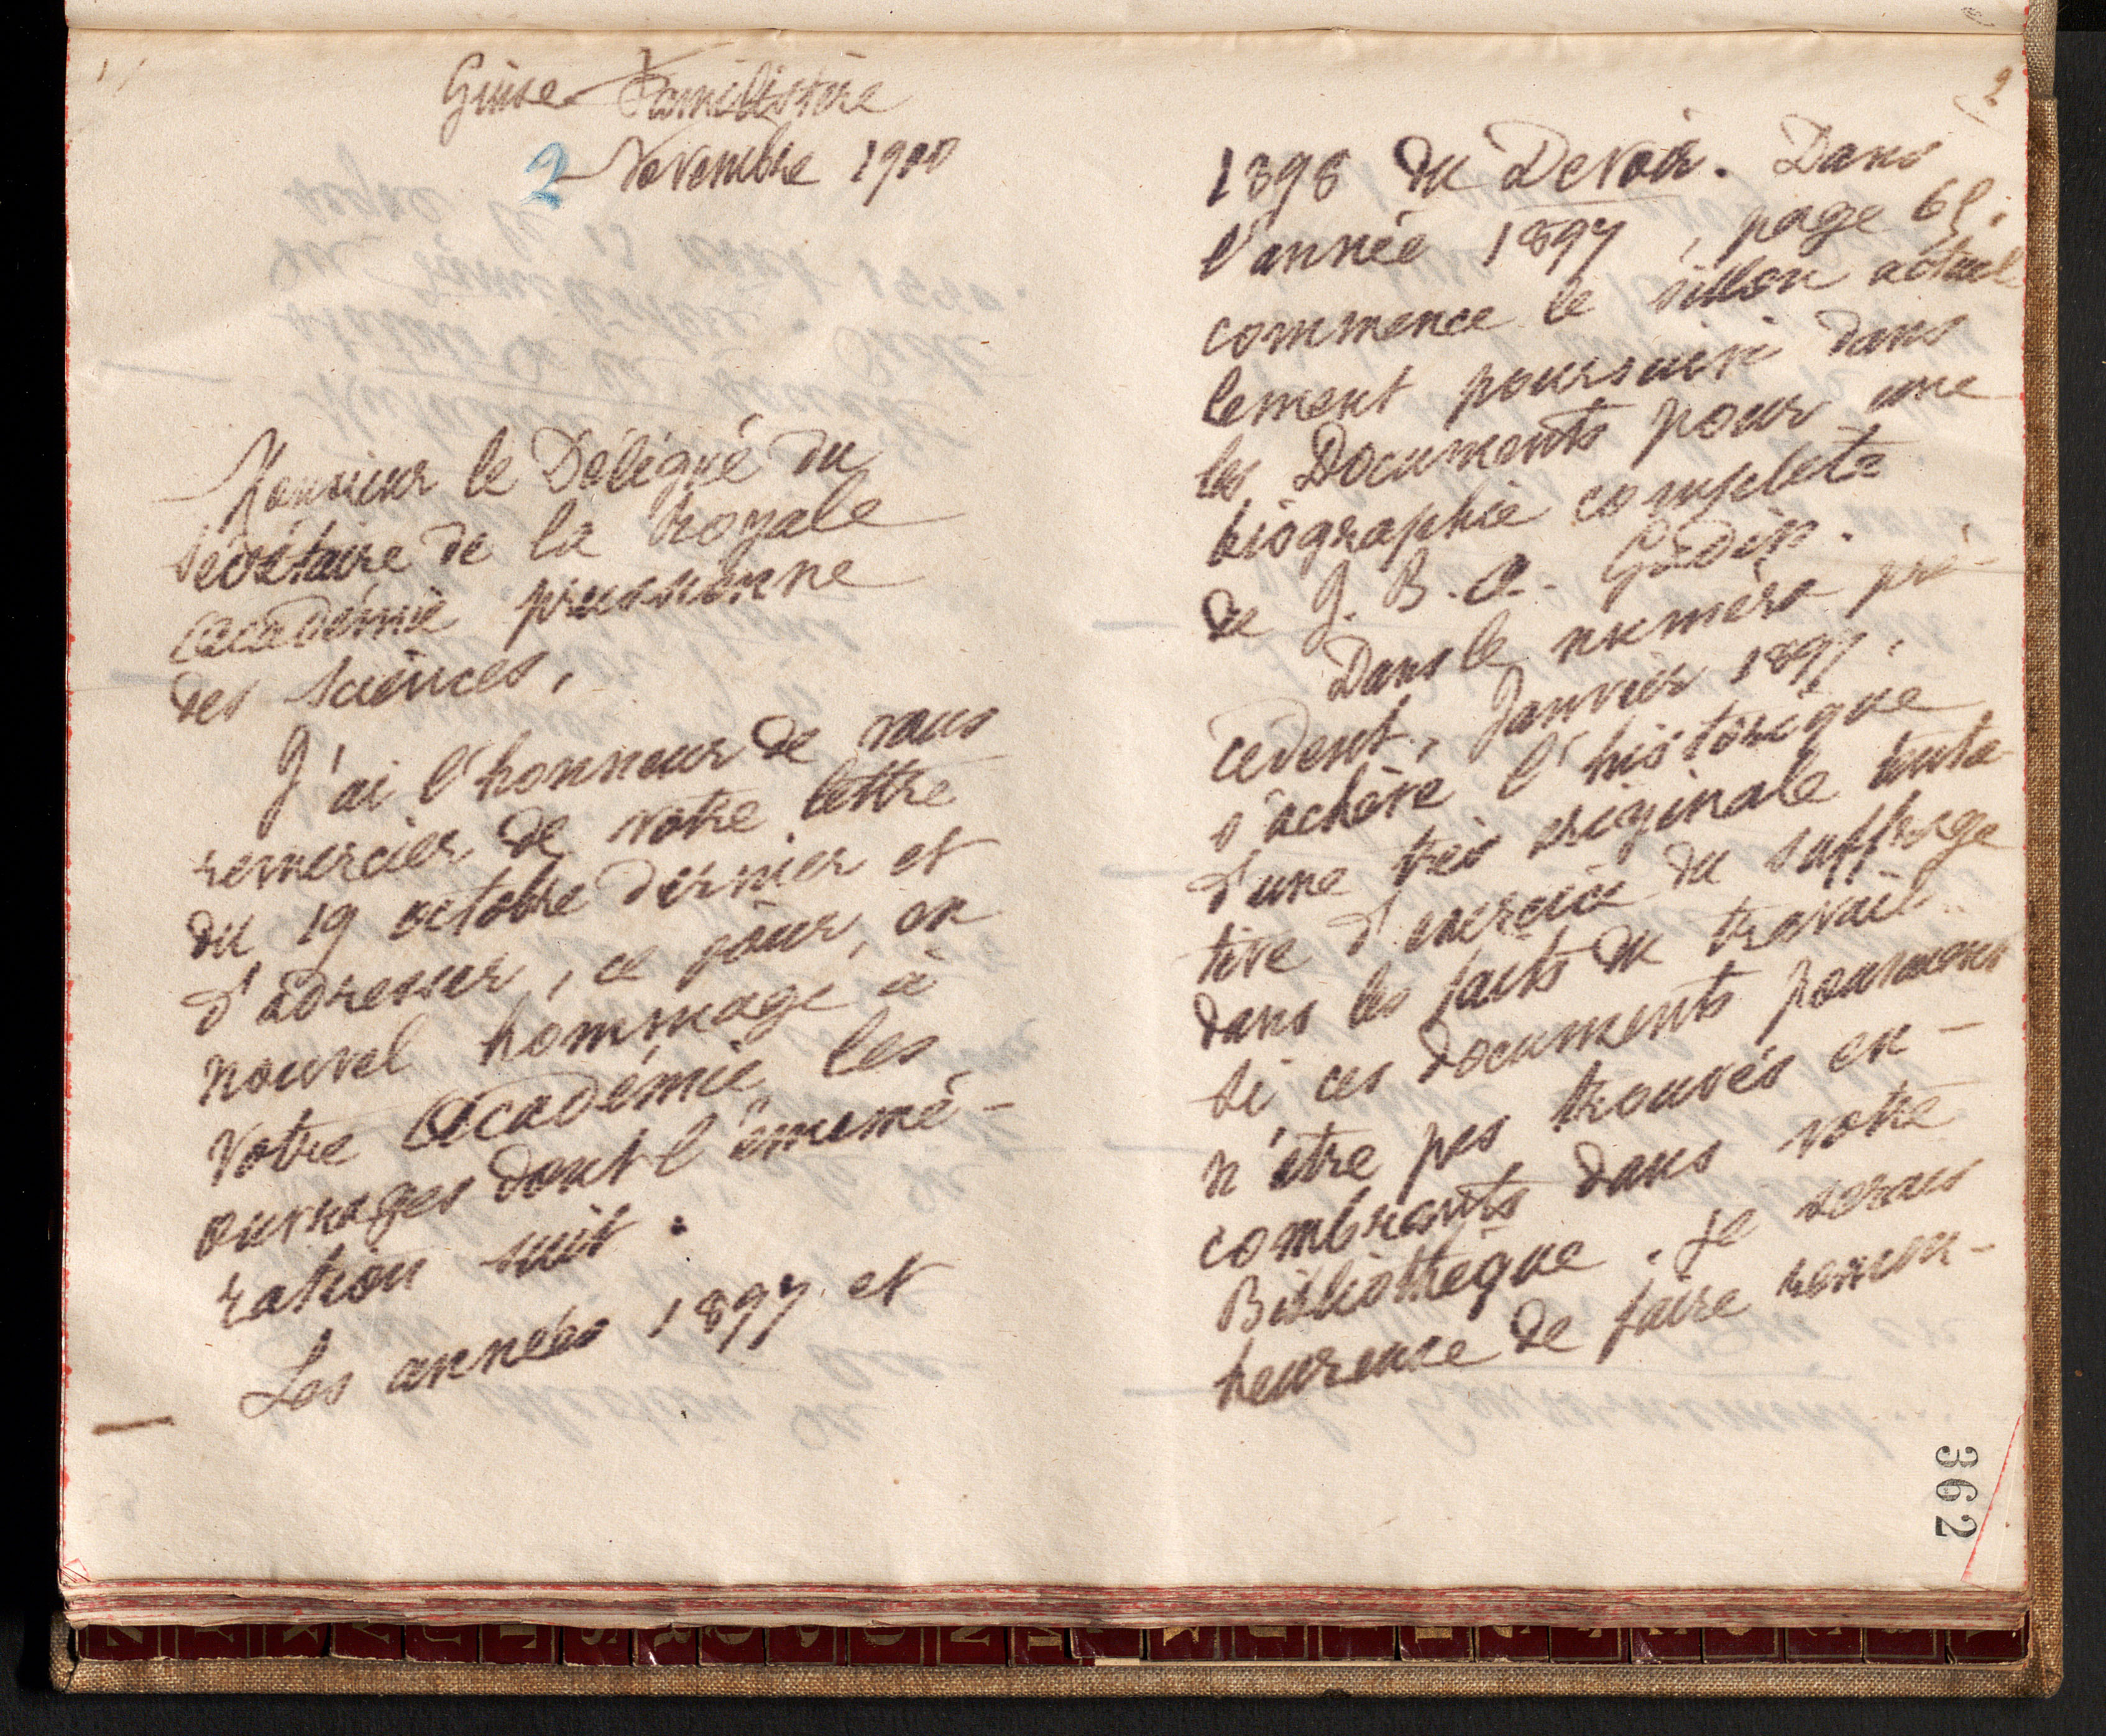 Guise Familistère
2 Novembre 1900
Monsieur le Délégué du
Secrétaire de la royale
Académie prussienne
des sciences,
J'ai l'honneur de vous
remercier de votre lettre
du 19 octobre dernier et
d'adresser, ce jour, en
nouvel hommage à
votre Académie les
ouvrages dont l'énumé-
ration suit :
Les années 1897 et
2
1898 du Devoir. Dans
l'année 1897, page 65.
commence le sillon actuel
lement poursuivi dans
les Documents pour une
biographie complète
de J. B. A. Godin.
Dans le numéro pré-
cédent, Janvier 1897,
s'achève l'historique
d'une très originale tenta-
tive d'exercice du suffrage
dans les faits du travail.
Si ces documents pouvaient
n'être pas trouvés en-
combrants dans votre
Bibliothèque. je serais
heureuse de faire remon-
362
Z Y X V U T S R Q P O N M